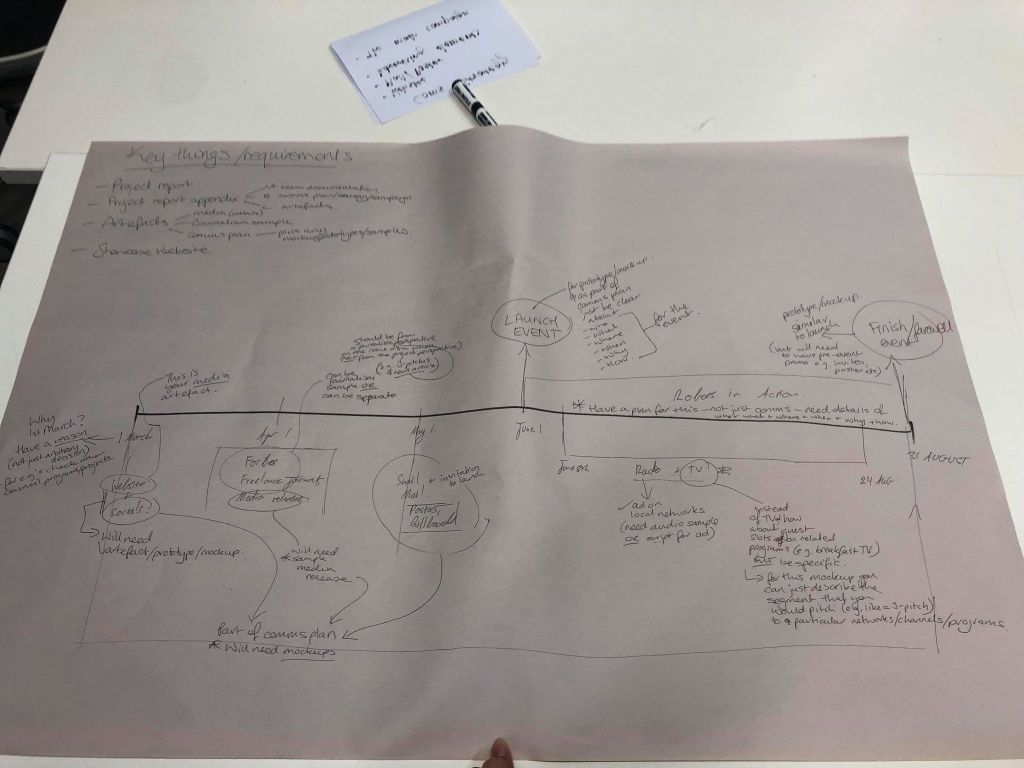 Key things/requirements
- Project report
- Project report appendix
team documentation
artefacts
- Artefacts
media (website)
Journalism sample
comms plan
plus any
mockups/prototypes/samples.
- Showcase Website.
for prototype/mockup.
as part of
comms plan
be clear
about
- who
- what
- where
- when
- why
- How.
for the
event.
LAUNCH
EVENT
prototype/mockup
similar
to launch
(but will need
to have pre-event
promo e.g. invites
poster etc)
Finish/
event
should be from
a journalistic perspective
on the issue
not from the project perspective)
(e.g. J-pitch
news article)
can be
journalism
sample OR
can be separate
This is
your media
artefact.
Why
1st March?
Have a reason
(not just arbitrary
decision)
for e.g. check other
council program/projects
1 March
Apr 1
May 1
June 1
Robots in Action
* Have a plan for this - not just comms - need details of
what + where + when + why + how.
June 8th
24 AUG
31 AUGUST
Website
+
Socials?
Will need
artefact/prototype/mockup.
Forbes
Freelance format
Media release
Snail
Mail
+ invitation
to launch.
Poster
Billboard
* Will need
sample
media
release
Part of comms plan
* Will need mockups
Radio + TV?
ad on
local networks
(need audio sample
OR script for ad)
instead
of TV how
about guest
slots on related
programs (e.g. breakfast TV)
BUT be specific.
for this mockup you
can just describe the
segment that you
would pitch (e.g. like a J-pitch)
to particular networks/channels/programs